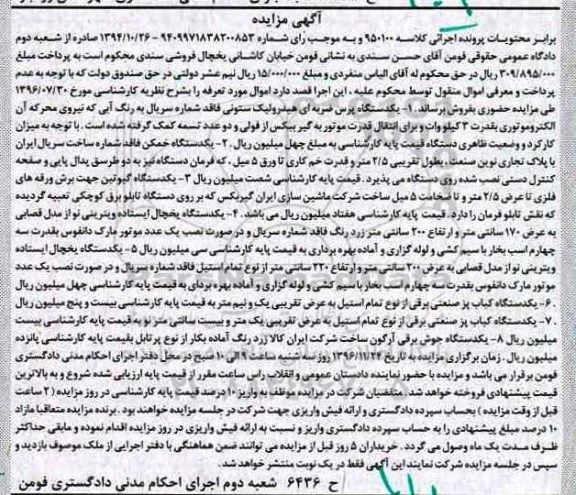 آگهی مزایده
برابر محتویات پرونده اجرائی کلاسه ۹۵۰۱۰۰ و به موجب رای شماره ۹۴۰۹۹۷۱۸۳۸۲۰۰۸۵۳ - ۱۳۹۴/۱۰/۲۶ صادره از شعبه دوم
دادگاه عمومی حقوقی فومن آقای حسن سندی به نشانی فومن خیابان کاشانی یخچال فروشی سندی محکوم است به پرداخت مبلغ
۳۰۹/۸۹۵/۰۰۰ ریال در حق محکوم له آقای الیاس منفردی و مبلغ ۱۵/۰۰۰/۰۰۰ ریال نیم عشر دولتی در حق صندوق دولت که با توجه به عدم
پرداخت و معرفی اموال منقول توسط محکوم علیه ، این اجرا قصد دارد اموال مورد تعرفه را بشرح نظریه کارشناسی مورخ ۱۳۹۶/۰۷/۳۰
طی مزایده حضوری بفروش برساند. ۱- یکدستگاه پرس ضربه ای هیدرولیک ستونی فاقد شماره سریال به رنگ آبی که نیروی محرکه آن
الکتروموتوری بقدرت ۳ کیلو وات و برای انتقال قدرت موتور به گیر بیکس از فولی و دو عدد تسمه کمک گرفته شده است . با توجه به میزان
کارکرد و وضعیت ظاهری دستگاه قیمت پایه کارشناسی به مبلغ چهل میلیون ریال . ۲- یکدستگاه خمکن فاقد شماره ساخت سریال ایران
با پلاک تجاری نوین صنعت ، بطول تقریبی ۲/۵ متر و قدرت خم کاری تا ورق ۵ میل ، که فرمان دستگاه نیز به دو طرسق پدال پایی و صفحه
کنترل دستی نصب شده روی دستگاه می پذیرد . قیمت پایه کارشناسی شصت میلیون ریال ۳- یکدستگاه گیوتین جهت برش ورقه های
فلزی تا عرض ۲/۵ متر و تا ضخامت ۵ میل ساخت شرکت ماشین سازی ایران گیربکس که بر روی دستگاه تابلو برق کوچکی تعبیه گردیده
که نقش تابلو فرمان را دارد. قیمت پایه کارشناسی هفتاد میلیون ریال می باشد. ۴- یکدستگاه یخچال ایستاده ویترینی نو از مدل قصابی
به عرض ۱۷۰ سانتی متر و ارتفاع ۲۰۰ سانتی متر زرد رنگ فاقد شماره سریال و در صورت نصب یک عدد موتور مارک دانفوس بقدرت سه
چهارم اسب بخار با سیم کشی و لوله گزاری و آماده بهره برداری به قیمت پایه کارشناسی سی میلیون ریال ۵- یکدستگاه یخچال ایستاده
ویترینی نو از مدل قصابی به عرض ۲۰۰ سانتی متر و ارتفاع ۲۲۰ سانتی متر از نوع تمام استیل فاقد شماره سریال و در صورت نصب یک عدد
موتور مارک دانفوس بقدرت سه چهارم اسب بخار با سیم کشی و لوله گزاری و آماده بهره بردای به قیمت پایه کارشناسی چهل میلیون ریال
. ۶- یکدستگاه کباب پز صنعتی برقی از نوع تمام استیل به عرض تقریبی یک و نیم متر به قیمت پایه کارشناسی بیست و پنج میلیون ریال
. ۷- یکدستگاه کباب پز صنعتی برقی از نوع تمام استیل به عرض تقریبی یک متر و بیست سانتی متر نو به قیمت پایه کارشناسی بیست
میلیون ریال ۸- یکدستگاه جوش برقی آرگون ساخت شرکت ایران کالا زرد رنگ آماده بکار از نوع پرتابل بقیمت پایه کارشناسی پانزده
میلیون ریال . زمان برگزاری مزایده به تاریخ ۱۳۹۶/۱۱/۲۴ روز سه شنبه ساعت ۹ الی ۱۰ صبح در محل دفتر اجرای احکام مدنی دادگستری
فومن برقرار می باشد و مزایده با حضور نماینده دادستان عمومی و انقلاب راس ساعت مقرر از قیمت پایه ارزیابی شده شروع و به بالاترین
قیمت پیشنهادی فروخته خواهد شد . متقضیان شرکت در مزایده موظف به واریز ۱۰ درصد قیمت پایه کارشناسی در روز مزایده ( ۲ ساعت
قبل از وقت مزایده ) بحساب سپرده دادگستری و ارائه فیش واریزی جهت شرکت در جلسه مزایده خواهند بود . برنده مزایده متعاقبا مازاد
۱۰ درصد مبلغ پیشنهادی را به حساب سپرده دادگستری واریز و نسبت به ارائه فیش واریزی در روز مزایده اقدام نموده و مابقی حداکثر
ظرف مدت یک ماه وصول می گردد . خریداران ۵ روز قبل از مزایده می توانند ضمن هماهنگی با دفتر اجرایی از ملک موصوف بازدید و
سپس در جلسه مزایده شرکت نمایند این آگهی فقط در یک نوبت منتشر خواهد شد.
ح ۶۴۳۶ شعبه دوم اجرای احکام مدنی دادگستری فومن